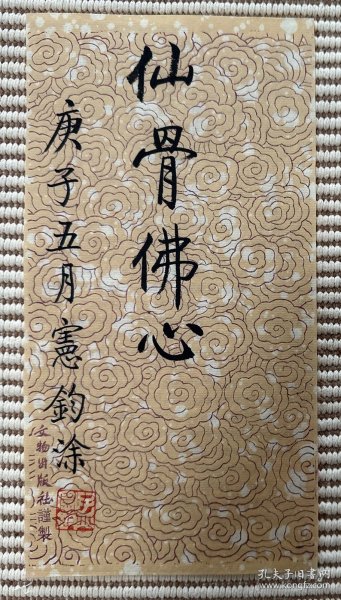 仙骨佛心
庚子五月憲鈞涂
文物出版社謹製
孔夫子旧书网